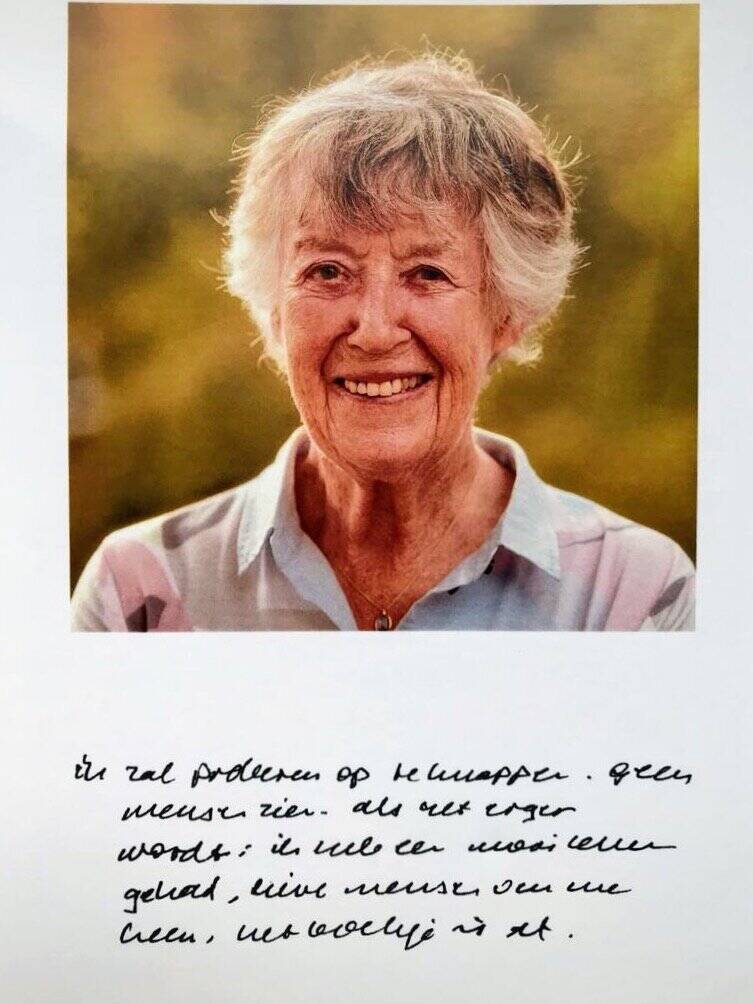 ik zal proberen op te knappen. geen
mensen zien. als het erger
wordt: ik heb een mooi leven
gehad, lieve mensen om me
heen, het boekje is af.